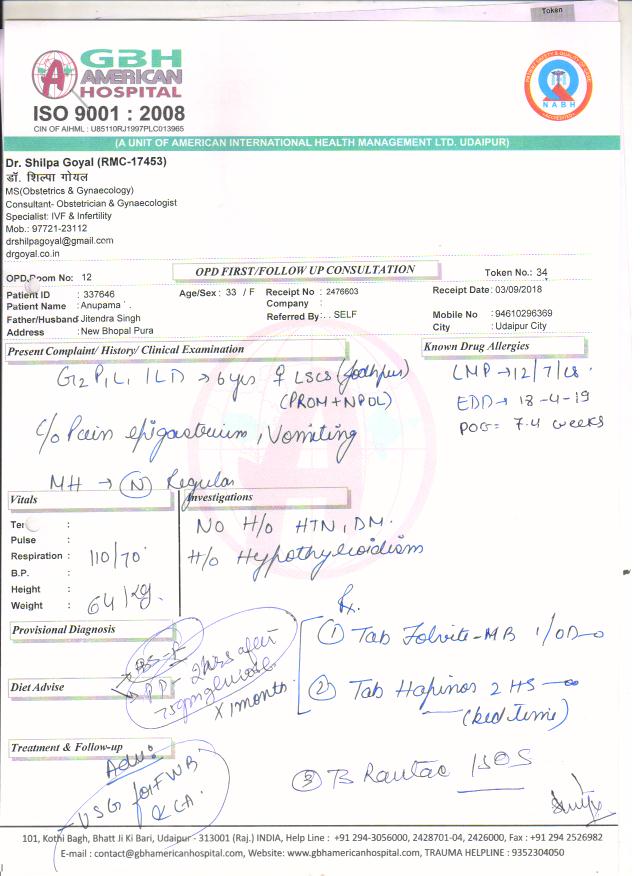 Token
GBH
AMERICAN
HOSPITAL
ISO 9001 : 2008
CIN OF AIHML : U85110RJ1997PLC013965
NABH
(A UNIT OF AMERICAN INTERNATIONAL HEALTH MANAGEMENT LTD. UDAIPUR)
Dr. Shilpa Goyal (RMC-17453)
डॉ. शिल्पा गोयल
MS(Obstetrics & Gynaecology)
Consultant- Obstetrician & Gynaecologist
Specialist: IVF & Infertility
Mob.: 97721-23112
drshilpagoyal@gmail.com
drgoyal.co.in
OPD Room No: 12 OPD FIRST/FOLLOW UP CONSULTATION Token No.: 34
Patient ID : 337646 Age/Sex : 33 / F Receipt No : 2476603 Receipt Date: 03/09/2018
Patient Name : Anupama . Company :
Father/Husband Jitendra Singh Referred By : . SELF Mobile No : 94610296369
Address : New Bhopal Pura City : Udaipur City
Present Complaint/ History/ Clinical Examination Known Drug Allergies
G2 P1 L1 1LD → 6 yrs ♀ LSCS (Jodhpur)
(PROM + NPOL)
LMP → 12/7/18.
EDD → 18-4-19
POG = 7.4 weeks
C/o Pain epigastrium, Vomiting
MH → N Regular
Vitals Investigations
Pulse :
Respiration : 110/70
B.P. :
Height :
Weight : 64 kg.
No H/o HTN, DM.
H/o Hypothyroidism
Rx.
Provisional Diagnosis
① Tab Folvite-MB 1/OD
BS-F
PP 2hrs after
75gm glucose
X 1 month
Diet Advise
② Tab Hapinos 2 HS
(bed time)
Treatment & Follow-up
Adv:
- USG for FWB
& GA.
③ T3 Rantac 1 SOS
101, Kothi Bagh, Bhatt Ji Ki Bari, Udaipur - 313001 (Raj.) INDIA, Help Line : +91 294-3056000, 2428701-04, 2426000, Fax : +91 294 2526982
E-mail : contact@gbhamericanhospital.com, Website: www.gbhamericanhospital.com, TRAUMA HELPLINE : 9352304050